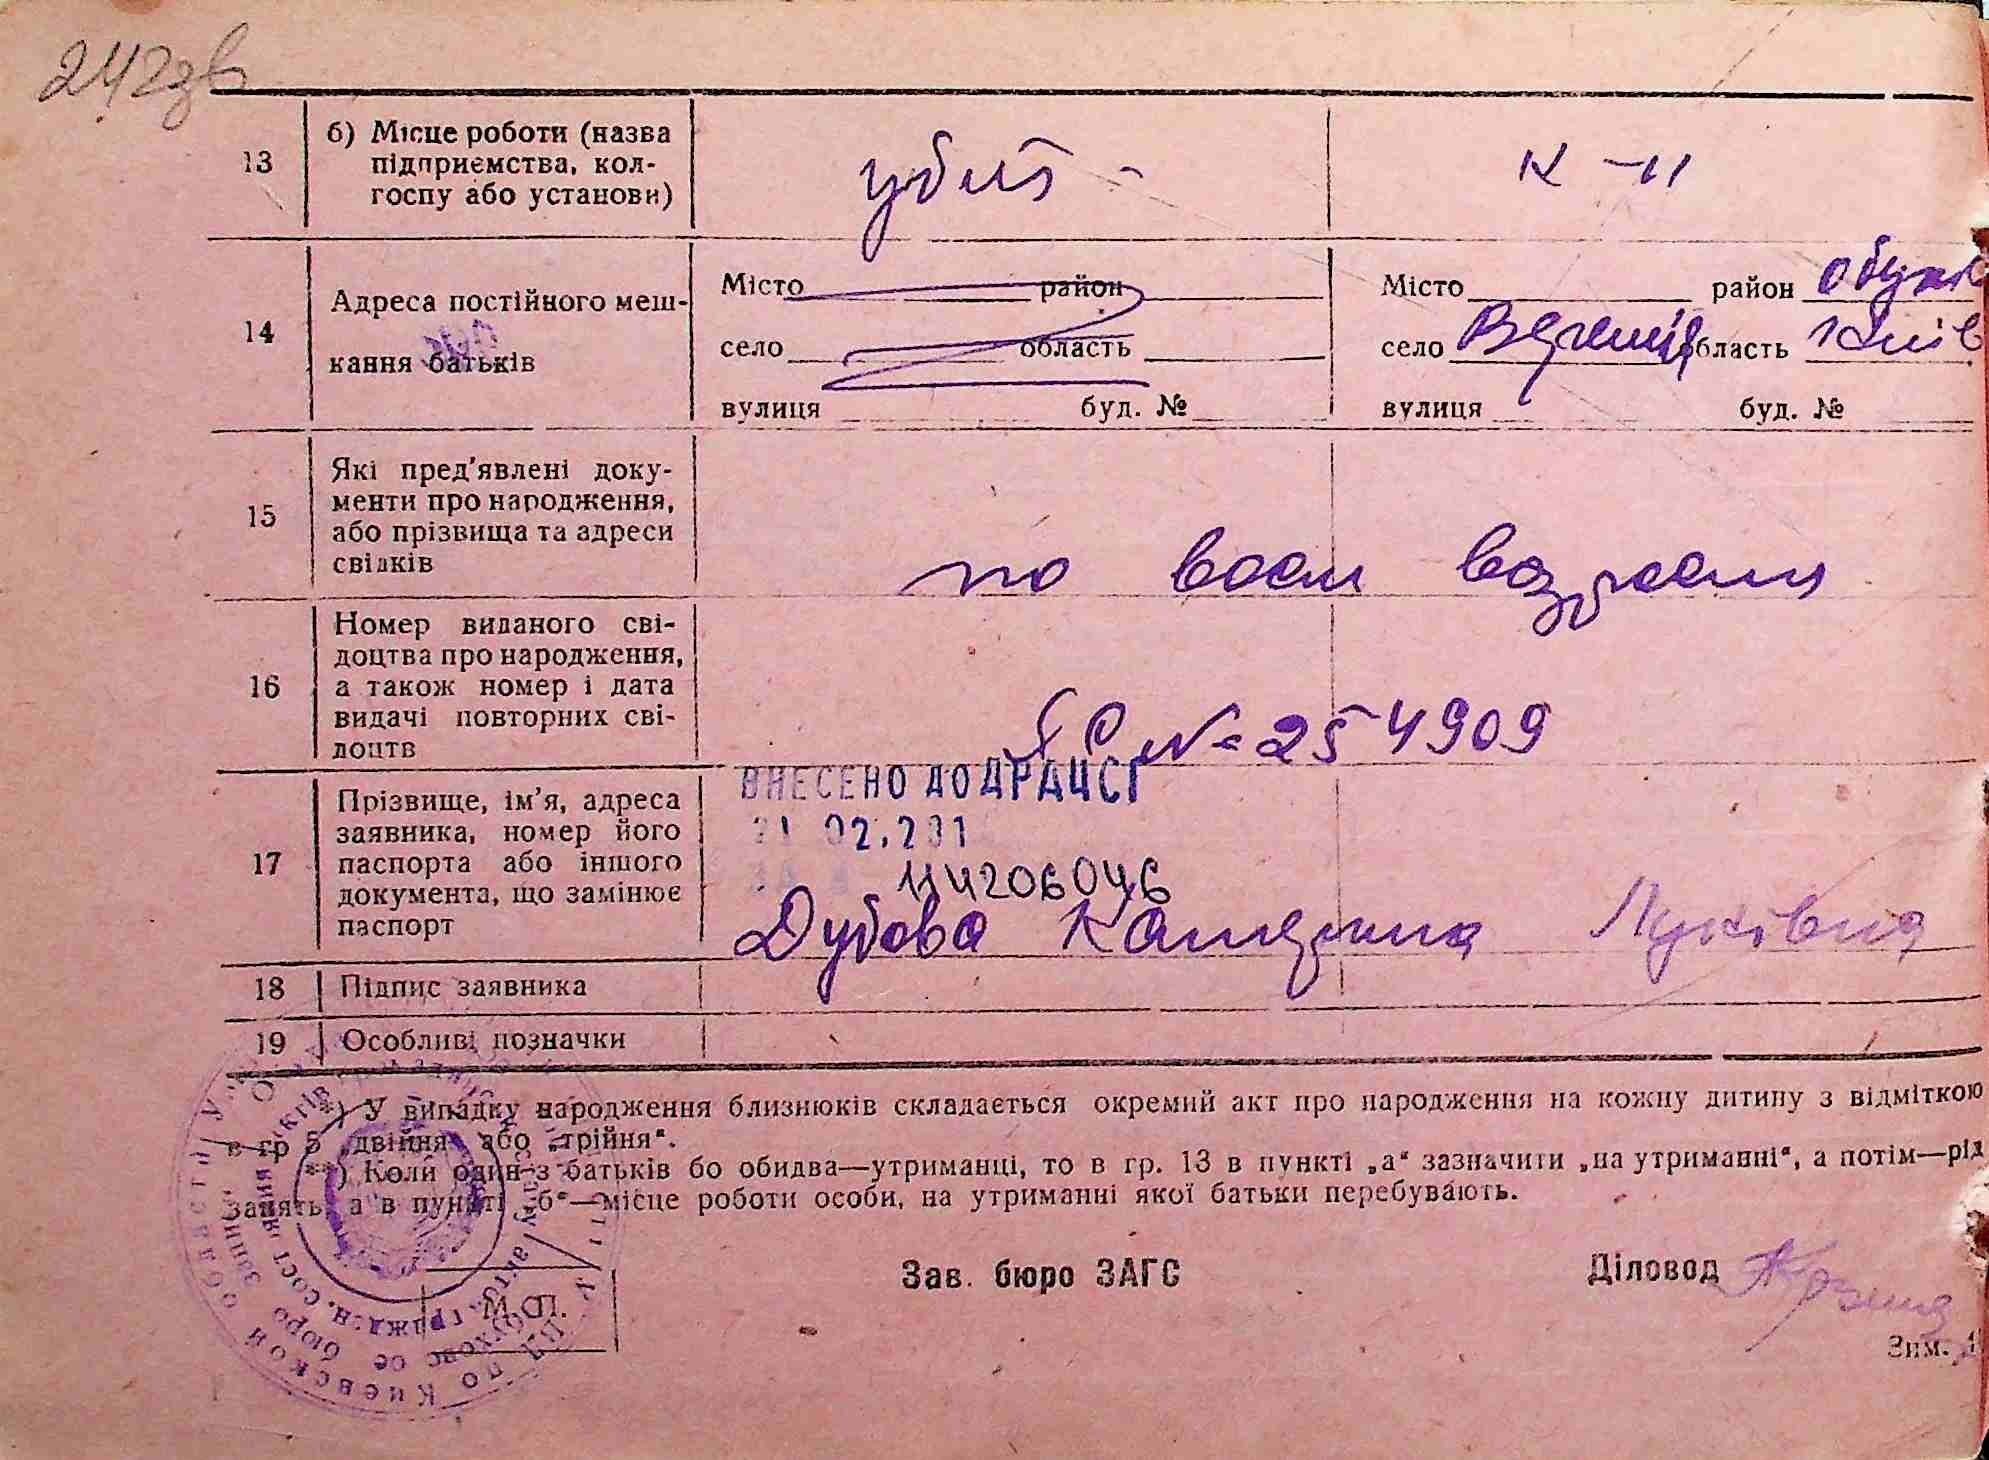 242зв
13
б) Місце роботи (назва
підприємства, кол-
госпу або установи)
убит -
к-п
14
Адреса постійного меш-
кання батьків
Місто район
село область
вулиця буд. №
Місто район Обухів
село область Київ
вулиця буд. №
15
Які пред'явлені доку-
менти про народження,
або прізвища та адреси
свідків
по воем возраст
16
Номер виданого сві-
доцтва про народження,
а також номер і дата
видачі повторних сві-
доцтв
№ 254909
17
Прізвище, ім'я, адреса
заявника, номер його
паспорта або іншого
документа, що замінює
паспорт
ВНЕСЕНО ДО ДРАЦСГ
02.201
114206046
Дубова Катерина Луківна
18
Підпис заявника
19
Особливі позначки
*) У випадку народження близнюків складається окремий акт про народження на кожну дитину з відміткою
в гр 5 „двійня“ або „трійня“.
**) Коли один з батьків бо обидва—утриманці, то в гр. 13 в пункті „а“ зазначити „на утриманні“, а потім—рід
занять, а в пункті „б“—місце роботи особи, на утриманні якої батьки перебувають.
Зав. бюро ЗАГС
Діловод
М. П.
по Киевской области
Зим.